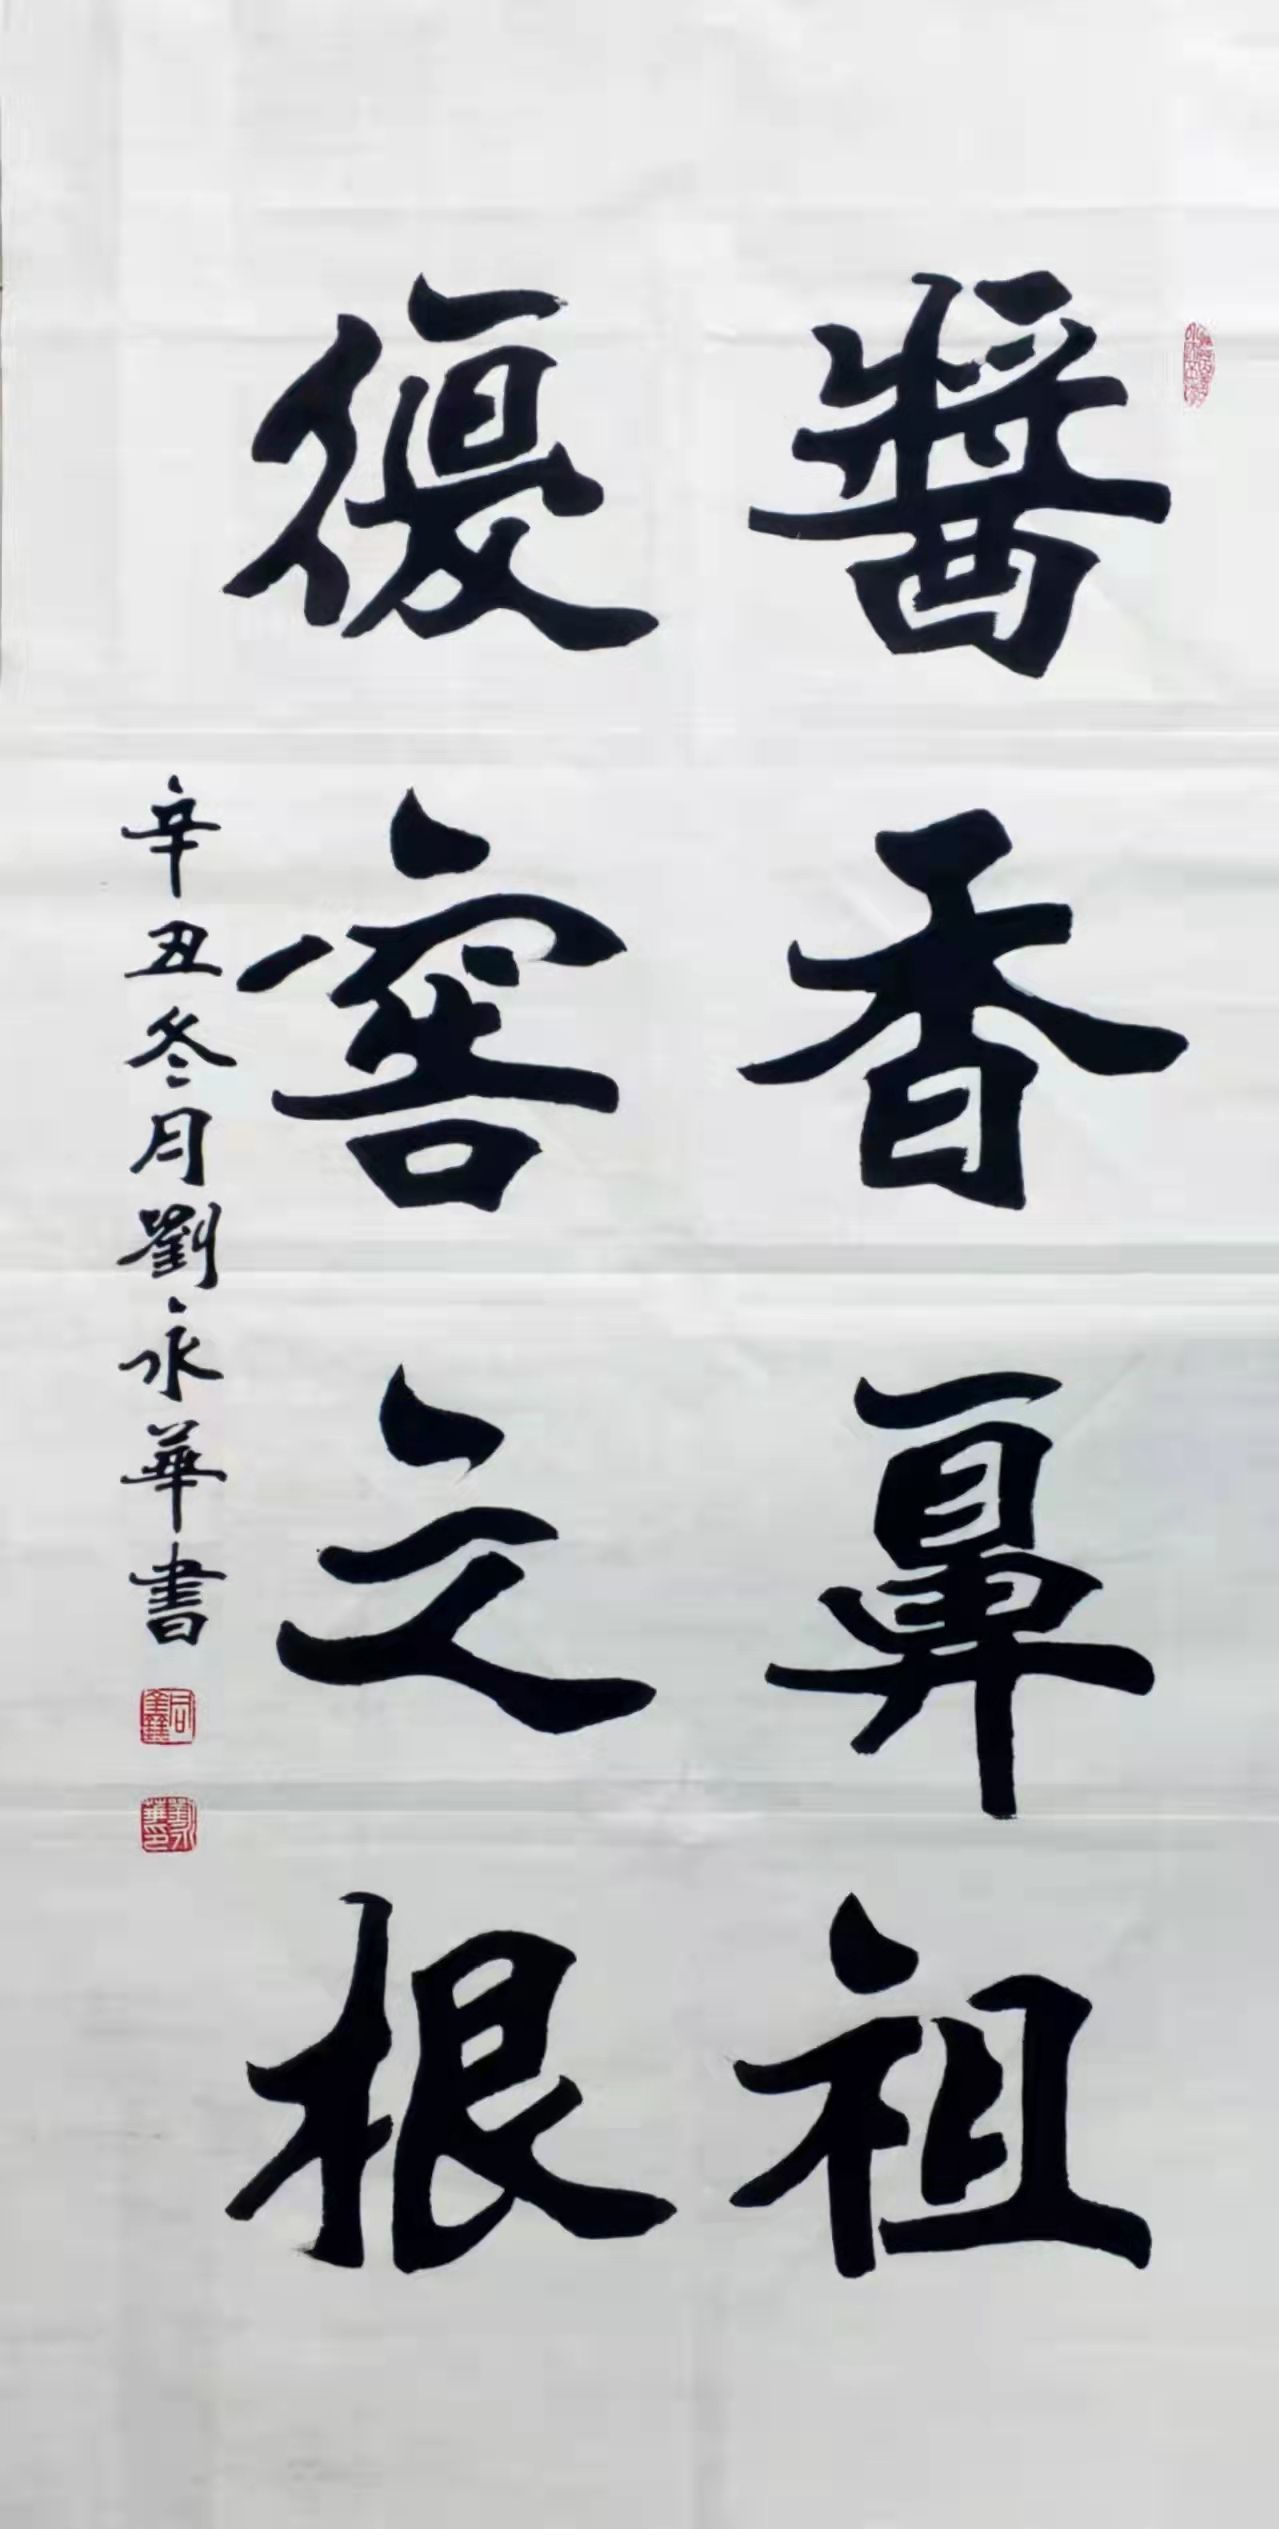 醬香鼻祖
優窖之根
辛丑冬月劉永華書